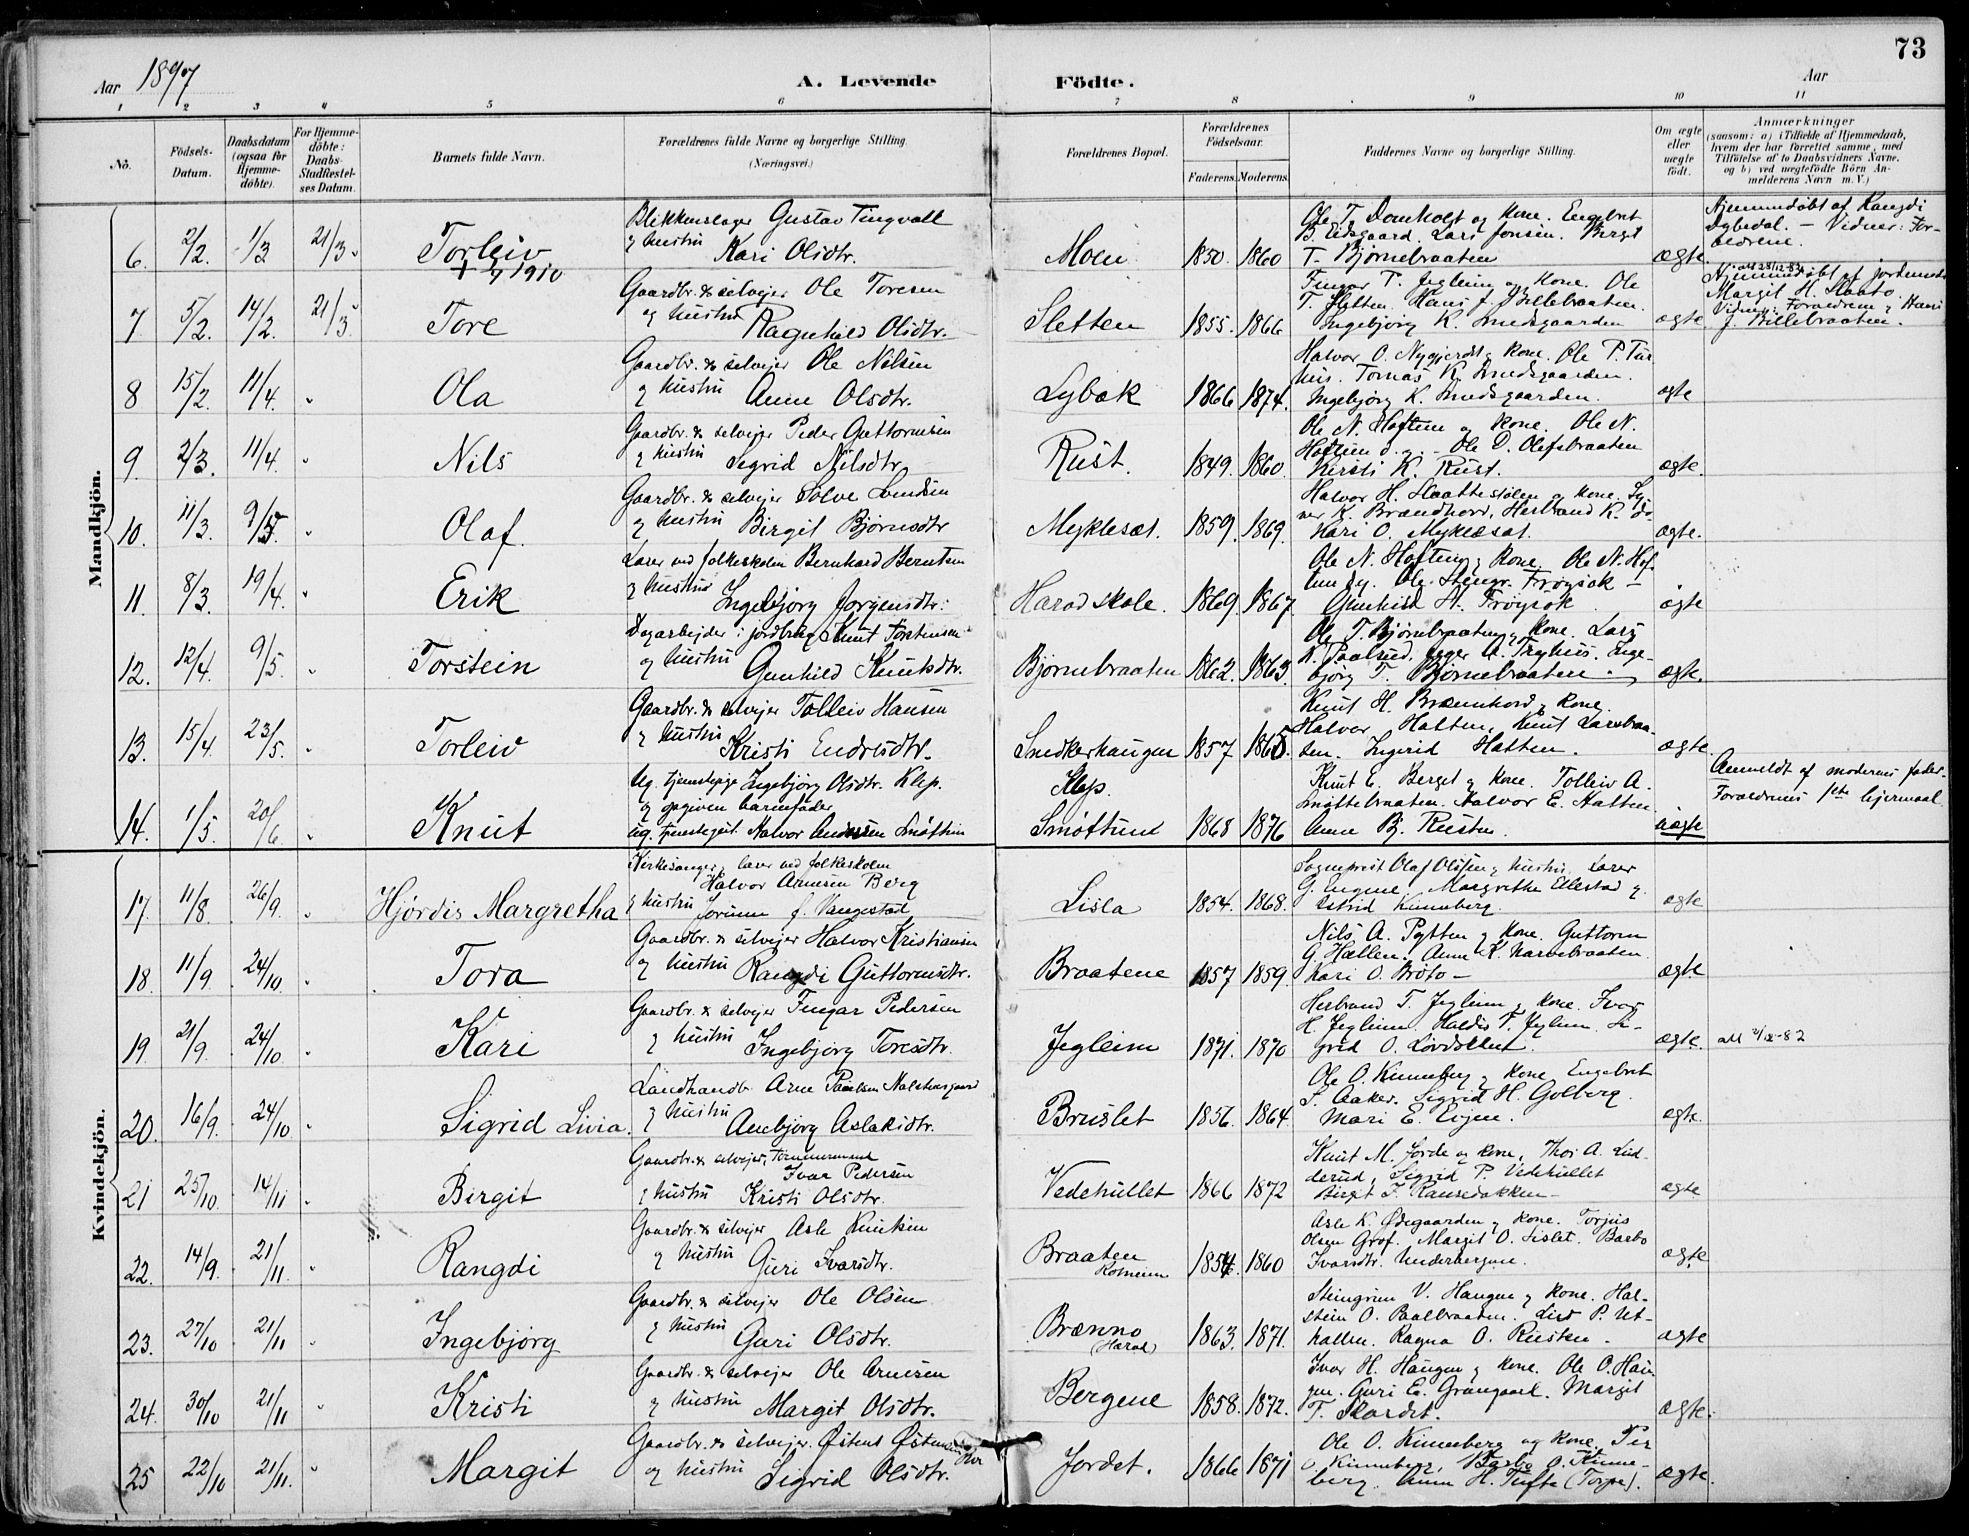 73
Aar 1897
A. Levende Födte.
Aar
1 2 3 4 5 6 7 8 9 10 11
No.
Födsels-Datum.
Daabsdatum (ogsaa for Hjemme-döbte).
For Hjemme-döbte: Daabs-Stadfæstelses Datum.
Barnets fulde Navn.
Forældrenes fulde Navne og borgerlige Stilling (Næringsvei.)
Forældrenes Bopæl.
Forældrenes Födselsaar.
Faderens. Moderens.
Faddernes Navne og borgerlige Stilling.
Om ægte eller uægte födt.
Anmærkninger
(saasom: a) i Tilfælde af Hjemmedaab, hvem der har forrettet samme, med Tilföielse af to Daabsvidners Navne, og b) ved uægtefödte Börn Anmelderens Navn m. V.)
Mandkjön.
6. 2/2. 1/3 21/3 Torleiv
Blikkenslager Gustav Tingvall
og hustru Kari Olsdtr.
Moen 1850. 1860
Ole T. Domholt og kone. Engebret
B. Eidsgaard. Lars Jonsen. Birgit
T. Bjørnebraaten
ægte
Hjemmedøbt af Rangdi
Dybedal. — Vidner: For-
ældrene.
7. 5/2. 14/2. 21/3 Tore
Gaardbr. & selvejer Ole Toresen
og hustru Ragnhild Olsdtr.
Sletten 1855. 1866
Fingar P. Jegleim og kone. Ole
T. Sletten. Hans J. Billebraaten.
Ingebjørg K. Smedsgaarden
ægte
Hjemmedøbt af jordemoder
Margit H.
Vidner: Forældrene og Hans
J. Billebraaten.
8 15/2. 11/4. Ola
Gaardbr. & selvejer Ole Nilsen
og hustru Anne Olsdtr.
Lybæk 1866 1874.
Halvor O. Nygjerdet og kone. Ole P. Tur-
hus. Tomas K. Smedsgaarden.
Ingebjørg K. Smedsgaarden.
ægte
9. 2/3. 11/4. Nils
Gaardbr. & selvejer Peder Guttormsen
og hustru Sigrid Nilsdtr
Rust. 1849. 1860.
Ole N. Hoftun og kone. Ole N.
Hoftun d. y. - Ole D. Olefsbraaten
Kirsti K. Rust.
ægte.
10. 11/3. 9/5. Olaf.
Gaardbr. & selvejer Sølve
og hustru Birgit Bjørnsdtr
Myklesæt. 1859. 1869.
Halvor H. Slaattestølen og kone.
K. Brændhovd. Herbrand K. do-
Kari O. Myklesæt.
ægte.
11. 8/3. 19/4. Erik
Lærer ved folkeskolen Bernhard Berntsen
og hustru Ingebjørg Jørgensdtr:
Harad skole. 1869. 1867.
Ole N. Hoftun og kone. Ole N. Hof-
tun d.y. Ole Stengr. Frøysok —
Gunhild H. Frøysok
ægte
12. 12/4. 9/5. Torstein
Dagarbejder i jordbrug Knut Torstensen
og hustru Gunhild Knutsdtr.
Bjørnebraaten 1862. 1863.
Ole T. Bjørnebraaten og kone. Lars
K. Paalsrud. A. Tryhus. Inge-
bjørg T. Bjørnebraaten
ægte.
13. 15/4. 23/5. Torleiv
Gaardbr. & selvejer Tolleiv Hansen
og hustru Kristi Endresdtr.
Snedkerhaugen 1857 1865.
Knut H. Brænnhovd og kone.
Halvor Hatten, Knut Larsbraa-
ten. Ingerid Hatten.
ægte
14. 1/5. 20/6. Knut
Ug. tjenestepige Ingebjørg Olsdtr. Klep.
og opgiven barnefader
ug. tjenestegut. Halvor Andersen Smøttun
Klep.
Smøttund 1868 1876
Knut E. Berget og kone. Tolleiv A.
Smøttebraaten. Halvor E. Hatten
Anne Bj. Rusten.
uægte
Anmeldt af moderens fader.
Forældrenes 1ste lejermaal
Kvindekjön.
17. 11/8. 26/9. Hjørdis Margretha
Kirkesanger og lærer ved folkeskolen
Halvor Arnesen Berg
og hustru Jorunn f. Vangestad
Lisla 1854. 1868.
Sogneprest Olaf Olafsen og hustru. Lærer
G. Eugene. Margrethe Ellestad og
Astrid Kinneberg.
ægte
18. 11/9. 24/10. Tora
Gaardbr. & selvejer Halvor Kristiansen
og hustru Rangdi Guttormsdtr.
Braatene 1857 1859.
Nils A. Pytten og kone. Guttorm
G. Hællen. Anne K. Narvebraaten
Kari O. Brøto —
ægte
19. 21/9. 24/10. Kari
Gaardbr. & selvejer Fingar Pedersen
og hustru Ingebjørg Toresdtr.
Jegleim 1871. 1870
Herbrand T. Jegleim og kone. Ivar
H. Jegleim. Haldis T. Jegleim. Si-
grid O.
ægte.
20. 16/9. 24/10 Sigrid Livia.
Landhandl. Arne Paulsen
og hustru Anebjørg Aslaksdtr.
Bruslet 1856. 1864.
Ole O. Kinneberg og kone. Engebret
S. Aaker. Sigrid H. Golberg.
Mari E. Eigen.
ægte.
21 25/10. 14/11 Birgit
Gaardbr. & selvejer, tømmermand
Ivar Pedersen
og hustru Kristi Olsdtr.
Vedehullet 1866 1872
Knut M. Jorde og kone, Thor A. Lud-
derud, Sigrid P. Vedehullet
Birgit T.
ægte
22. 14/9. 21/11. Rangdi
Gaardbr. & selvejer Asle Knutsen
og hustru Guri Ivarsdtr.
Braaten
1854. 1860
Asle K. Ødegaarden og kone. Torjus
Olsen Grøf. Margit O. Lislet. Barbo
Ivarsdtr. Underbergene.
ægte
23. 27/10. 21/11 Ingebjørg
Gaardbr. & selvejer Ole Olsen
og hustru Guri Olsdtr.
Brænno
(Harad) 1863. 1871.
Steingrim V. Haugen og kone. Hal-
stein O. Paalbraaten. Livs P. Ut-
hallen. Ragna O. Rusten.
ægte
24. 30/10 21/11 Kristi
Gaardbr. & selvejer Ole Arnesen
og hustru Margit Olsdtr.
Bergene 1858. 1872.
Ivar H. Haugen og kone. Ole O. Hau-
gen. Guri E. Grangaard. Margit
T. Skordet.
ægte.
25 22/10 21/11. Margit
Gaardbr. & selvejer Østens Østensen
og hustru Sigrid Olsdtr.
Jordet. 1866 1871
Ole O. Kinneberg og kone. Per
O. Kinneberg, Barbo O. Kinne-
berg. Anne H. Tufte (Torpe).
ægte